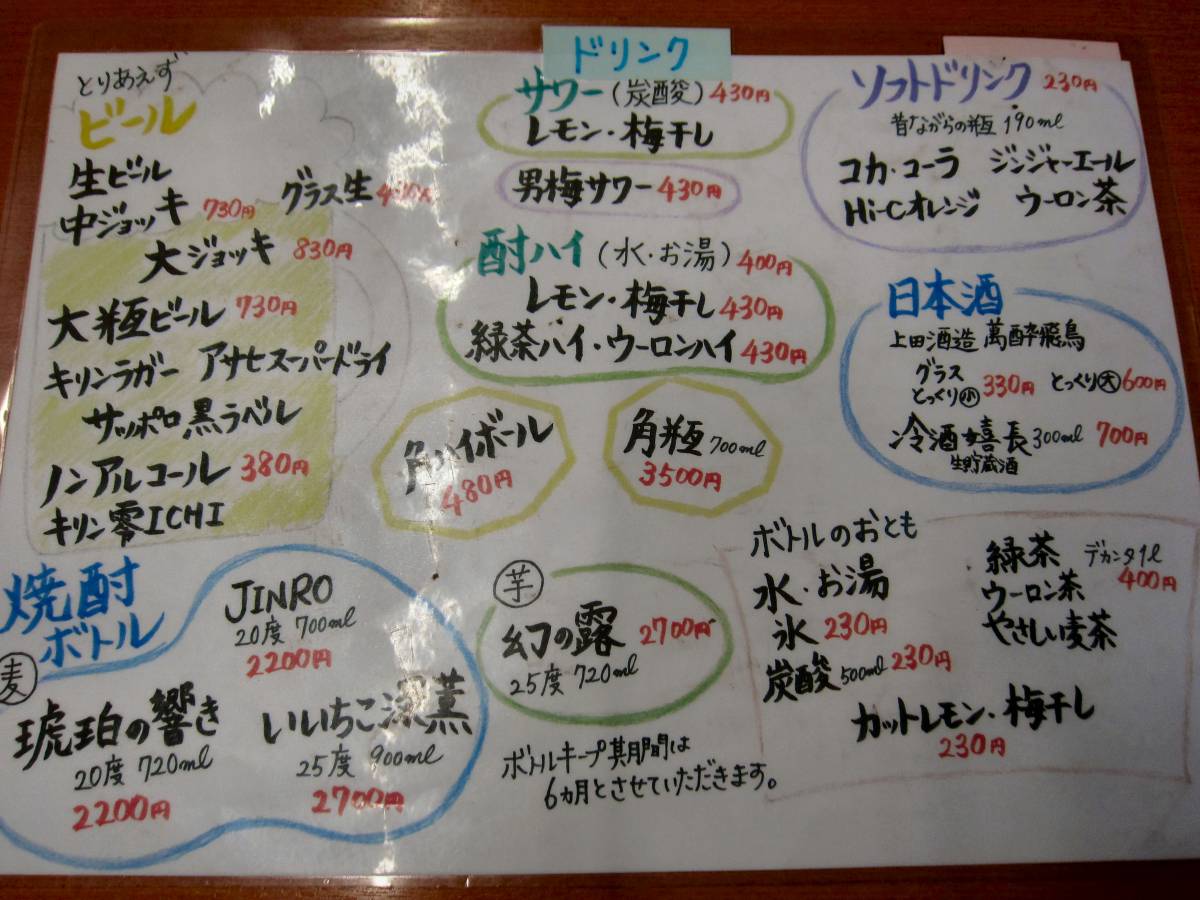 ドリンク
とりあえず
ビール
生ビール
中ジョッキ 730円 グラス生
大ジョッキ 830円
大瓶ビール 730円
キリンラガー アサヒスーパードライ
サッポロ黒ラベル
ノンアルコール 380円
キリン零ICHI
サワー(炭酸) 430円
レモン・梅干し
男梅サワー 430円
酎ハイ(水・お湯) 400円
レモン・梅干し 430円
緑茶ハイ・ウーロンハイ 430円
角ハイボール
480円
角瓶 700ml
3500円
ソフトドリンク 230円
昔ながらの瓶 190ml
コカ・コーラ ジンジャーエール
Hi-Cオレンジ ウーロン茶
日本酒
上田酒造 萬酔飛鳥
グラス
とっくり小 330円 とっくり大 600円
冷酒 嬉長 300ml 700円
生貯蔵酒
焼酎
ボトル
JINRO
20度 700ml
2200円
麦
琥珀の響き
20度 720ml
2200円
いいちこ深薫
25度 900ml
2700円
芋
幻の露 2700円
25度 720ml
ボトルキープ期間は
6カ月とさせていただきます。
ボトルのおとも
水・お湯
氷 230円
炭酸 500ml 230円
緑茶 デカンタ1l
ウーロン茶 400円
やさしい麦茶
カットレモン・梅干し
230円